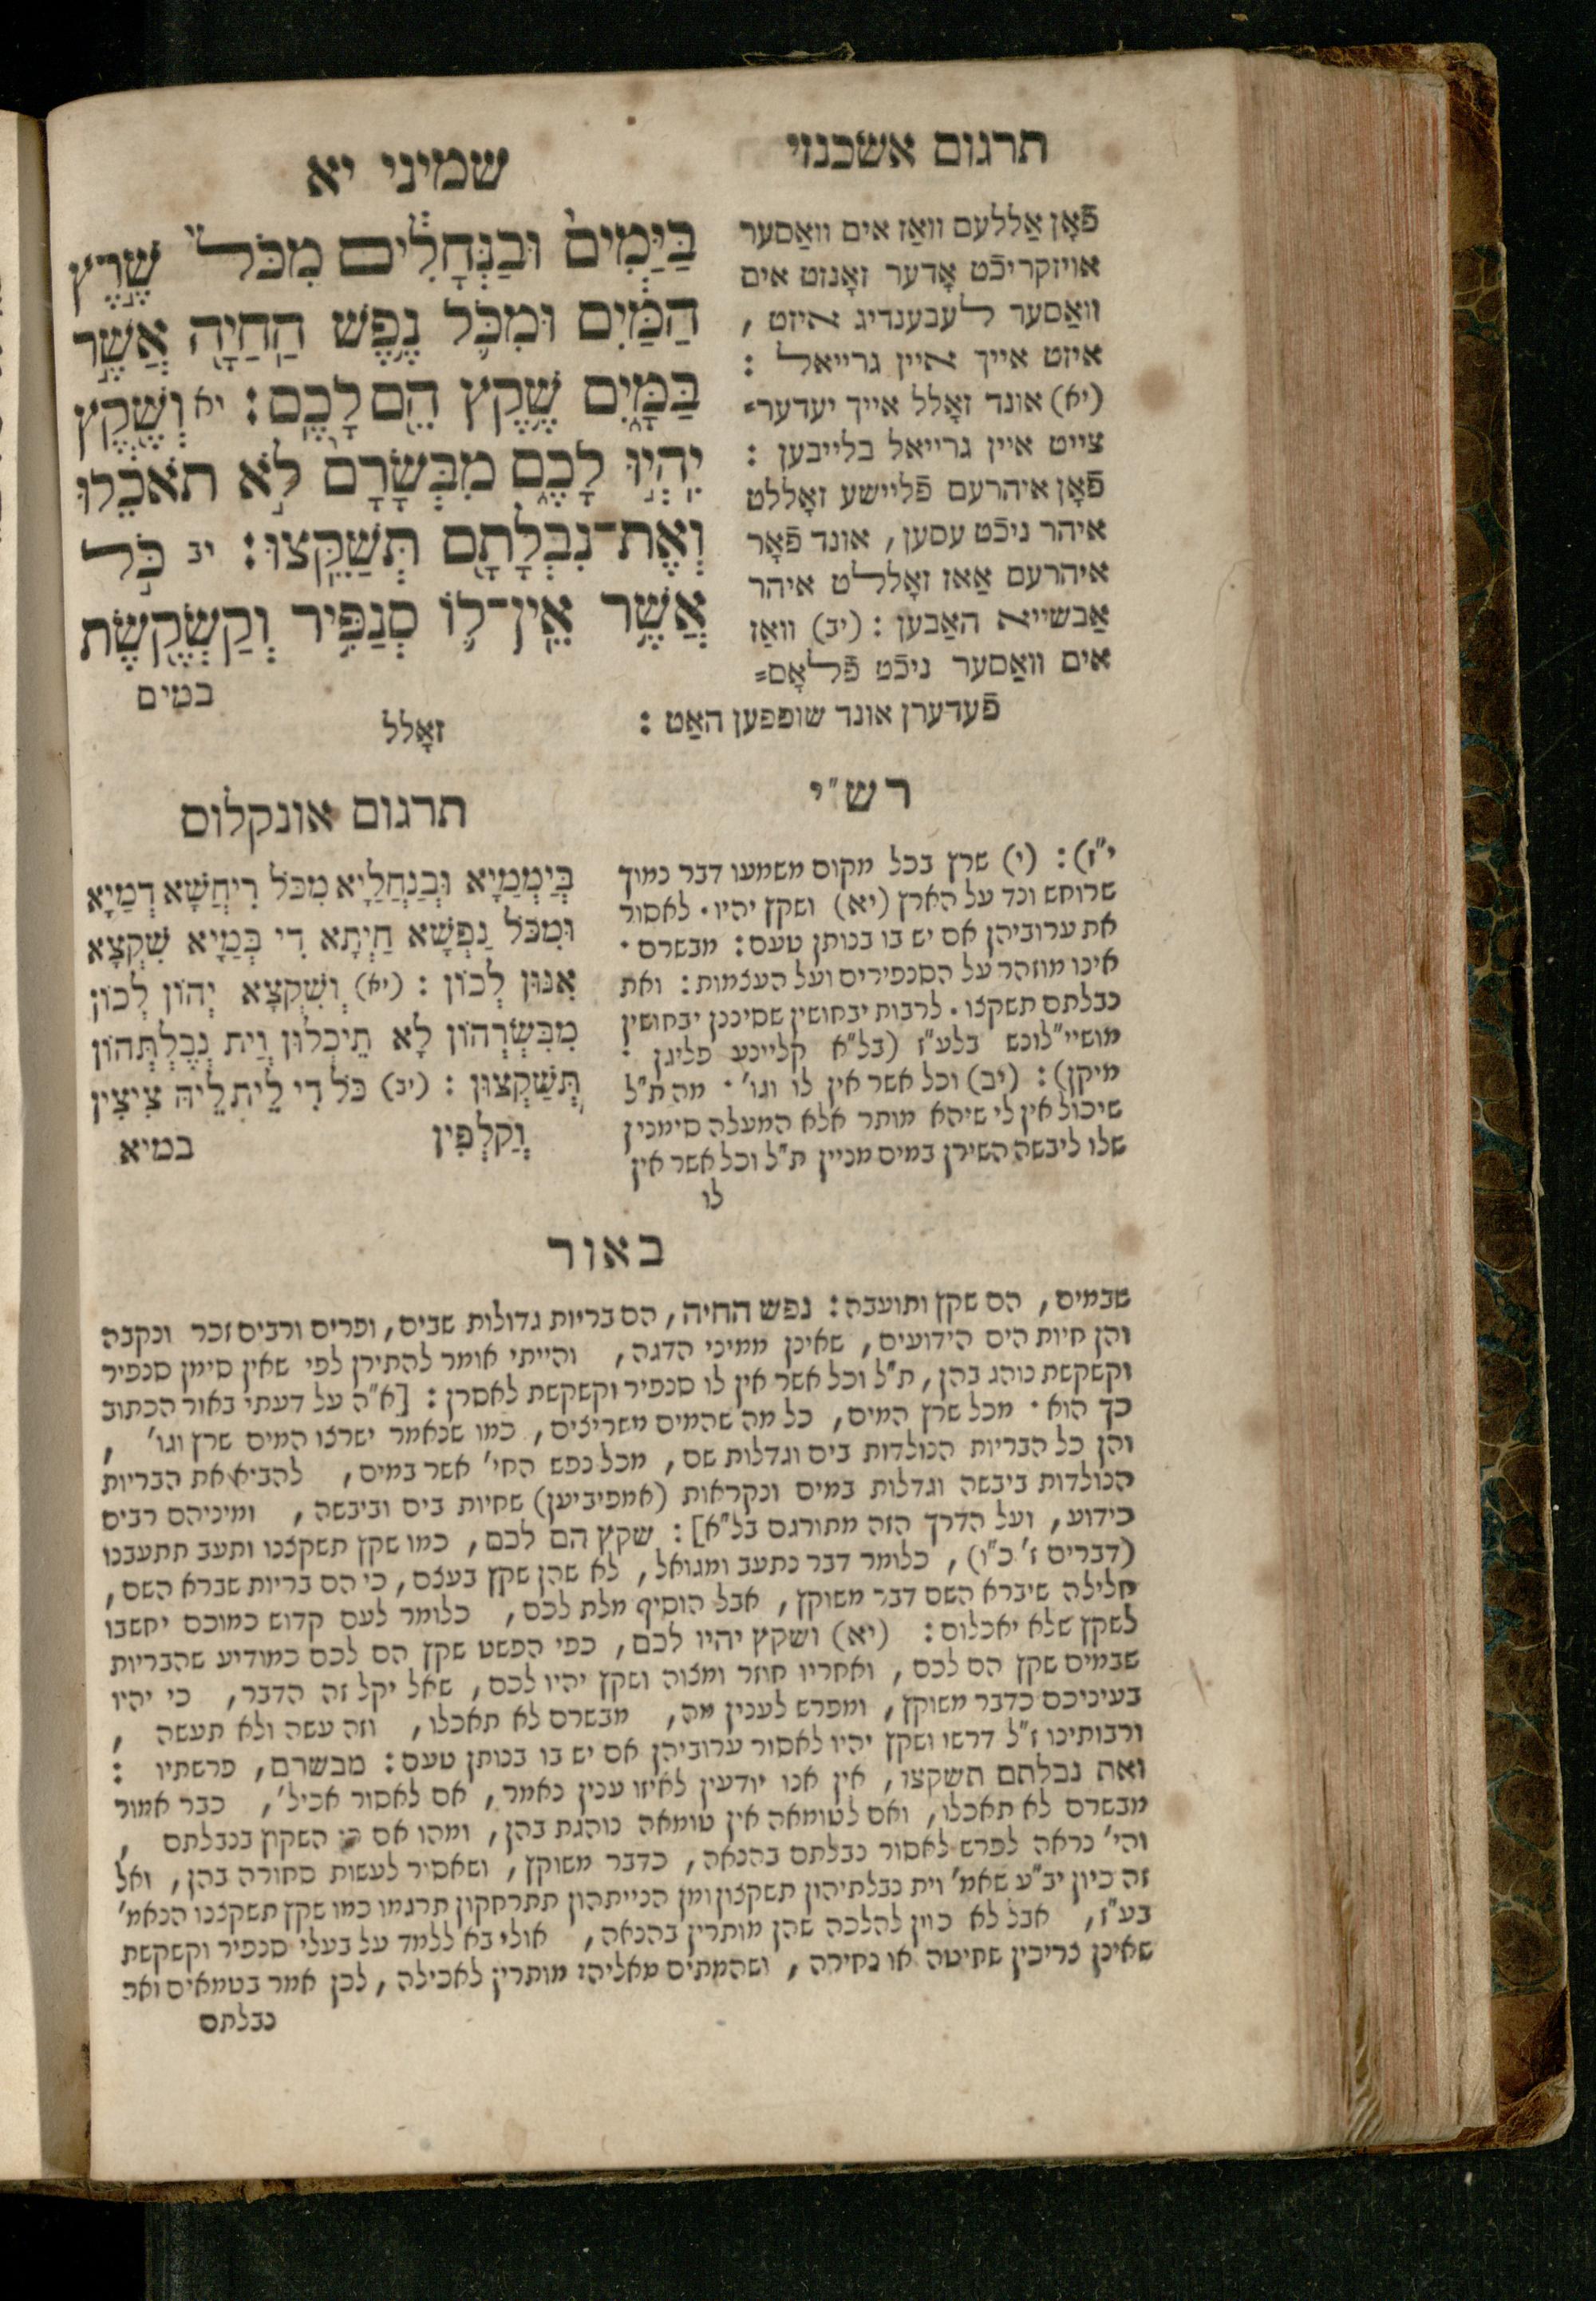 תרגום אשכנזי
פֿאָן אַללעם וואַז אים וואַסער
אויזקריכֿט אָדער זאָנזט אים
וואַסער לעבענדיג איזט ,
איזט אייך איין גרייאל :
(יא) אונד זאָלל אייך יעדער=
צייט איין גרייאל בלייבען :
פֿאָן איהרעם פֿליישע זאָללט
איהר ניכֿט עסען, אונד פֿאָר
איהרעם אַאז זאָללט איהר
אַבשייא האַבען : (יב) וואַז
אים וואַסער ניכֿט פֿלאָס=
פֿעדערן אונד שופפען האַט :
זאָלל
שמיני יא
בַּיַּמִּים֙ וּבַנְּחָלִ֔ים מִכֹּל֙ שֶׁ֣רֶץ
הַמַּ֔יִם וּמִכֹּ֛ל נֶ֥פֶשׁ הַחַיָּ֖ה אֲשֶׁ֣ר
בַּמָּ֑יִם שֶׁ֥קֶץ הֵ֖ם לָכֶֽם׃ יא וְשֶׁ֖קֶץ
יִהְי֣וּ לָכֶ֑ם מִבְּשָׂרָם֙ לֹ֣א תֹאכֵ֔לוּ
וְאֶת־נִבְלָתָ֖ם תְּשַׁקֵּֽצוּ׃ יב כֹּ֣ל
אֲשֶׁ֥ר אֵֽין־ל֛וֹ סְנַפִּ֥יר וְקַשְׂקֶ֖שֶׂת
במים
רש"י
י"ז): (י) שרץ בכל מקום משמעו דבר נמוך
שרוחש ונד על הארץ (יא) ושקץ יהיו. לאסור
את ערוביהן אם יש בו בנותן טעם: מבשרם .
אינו מוזהר על הסנפירים ועל העצמות: ואת
נבלתם תשקצו. לרבות יבחושין שסיננן יבחושין
מושיי"לונש בלע"ז (בל"א קליינע פליגן :
מיקן): (יב) וכל אשר אין לו וגו' . מה ת"ל
שיכול אין לי שיהא מותר אלא המעלה סימנין
שלו ליבשה השירן במים מניין ת"ל וכל אשר אין
לו
תרגום אונקלוס
בְּיַמְמַיָא וּבְנַחֲלַיָא מִכֹּל רִיחֲשָׁא דְמַיָא
וּמִכֹּל נַפְשָׁא חַיְתָא דִי בְּמַיָא שִׁקְצָא
אִנּוּן לְכוֹן : (יא) וְשִׁקְצָא יְהוֹן לְכוֹן
מִבִּשְׂרְהוֹן לָא תֵיכְלוּן וְיַת נְבֶלְתְּהוֹן
תְּשַׁקְצוּן : (יב) כֹּל דִי לֵית לֵיהּ צִיצִין
וְקַלְפִין במיא
באור
שבמים, הם שקץ ותועבה: נפש החיה, הם בריות גדולות שבים, ופרים ורבים זכר ונקבה
והן חיות הים הידועים, שאינן ממיני הדגה, והייתי אומר להתירן לפי שאין סימן סנפיר
וקשקשת נוהג בהן, ת"ל וכל אשר אין לו סנפיר וקשקשת לאסרן: [א"ה על דעתי באור הכתוב
כך הוא . מכל שרץ המים, כל מה שהמים משריצים, כמו שנאמר ישרצו המים שרץ וגו' ,
והן כל הבריות הנולדות בים וגדלות שם, מכל נפש החי' אשר במים, להביא את הבריות
הנולדות ביבשה וגדלות במים ונקראות (אמפיביען) שחיות בים וביבשה, ומיניהם רבים
כידוע, ועל הדרך הזה מתורגם בל"א]: שקץ הם לכם, כמו שקץ תשקצנו ותעב תתעבנו
(דברים ז' כ"ו), כלומר דבר נתעב ומגואל, לא שהן שקץ בעצם, כי הם בריות שברא השם,
חלילה שיברא השם דבר משוקץ, אבל הוסיף מלת לכם, כלומר לעם קדוש כמוכם יחשבו
לשקץ שלא יאכלום: (יא) ושקץ יהיו לכם, כפי הפשט שקץ הם לכם כמודיע שהבריות
שבמים שקץ הם לכם, ואחריו חוזר ומצוה ושקץ יהיו לכם, שאל יקל זה הדבר, כי יהיו
בעיניכם כדבר משוקץ, ומפרש לענין מה, מבשרם לא תאכלו, וזה עשה ולא תעשה ,
ורבותינו ז"ל דרשו ושקץ יהיו לאסור ערוביהן אם יש בו בנותן טעם: מבשרם, פרשתיו :
ואת נבלתם תשקצו, אין אנו יודעין לאיזו ענין נאמר, אם לאסור אכיל', כבר אמור
מבשרם לא תאכלו, ואם לטומאה אין טומאה נוהגת בהן, ומהו אם כן השקוץ בנבלתם ,
והי' נראה לפרש לאסור נבלתם בהנאה, כדבר משוקץ, ושאסור לעשות סחורה בהן, ואל
זה כיון יב"ע שאמ' וית נבלתיהון תשקצון ומן הנייתהון תתרחקון תרגמו כמו שקץ תשקצנו הנאמ'
בע"ז, אבל לא כוין להלכה שהן מותרין בהנאה, אולי בא ללמד על בעלי סנפיר וקשקשת
שאינן צריכין שחיטה או נחירה, ושהמתים מאליהן מותרין לאכילה, לכן אמר בטמאים ואת
נבלתם